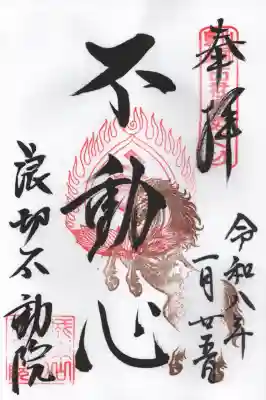 奉拝
不動心
令和八年
一月廿五日
浪切不動院